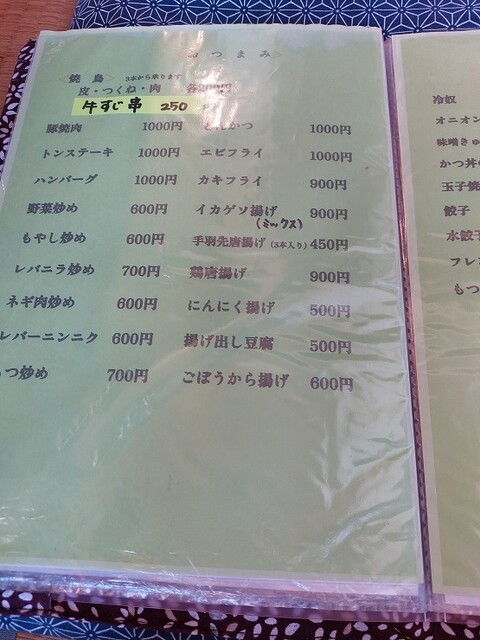 つまみ
焼鳥 3本から承ります
皮・つくね・肉
牛すじ串 250
豚焼肉 1000円 とんかつ 1000円
トンステーキ 1000円 エビフライ 1000円
ハンバーグ 1000円 カキフライ 900円
野菜炒め 600円 イカゲソ揚げ 900円
(ミックス)
もやし炒め 600円 手羽先唐揚げ(3本入り) 450円
レバニラ炒め 700円 鶏唐揚げ 900円
ネギ肉炒め 600円 にんにく揚げ 500円
レバーニンニク 600円 揚げ出し豆腐 500円
つ炒め 700円 ごぼうから揚げ 600円
冷奴
オニオン
味噌きゅ
かつ丼の
玉子焼
餃子
水餃子
フレン
もつ